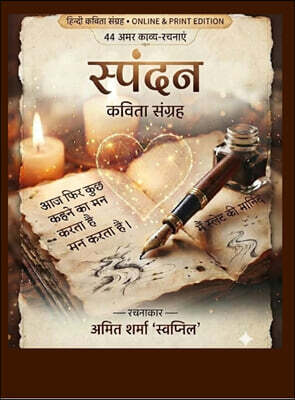 हिन्दी कविता संग्रह • ONLINE & PRINT EDITION
44 अमर काव्य-रचनाएं
स्पंदन
कविता संग्रह
आज फिर कुछ
कहने का मन
करता है
मन करता है।
मैं स्लेट की मानिंद
रचनाकार
अमित शर्मा 'स्वप्निल'